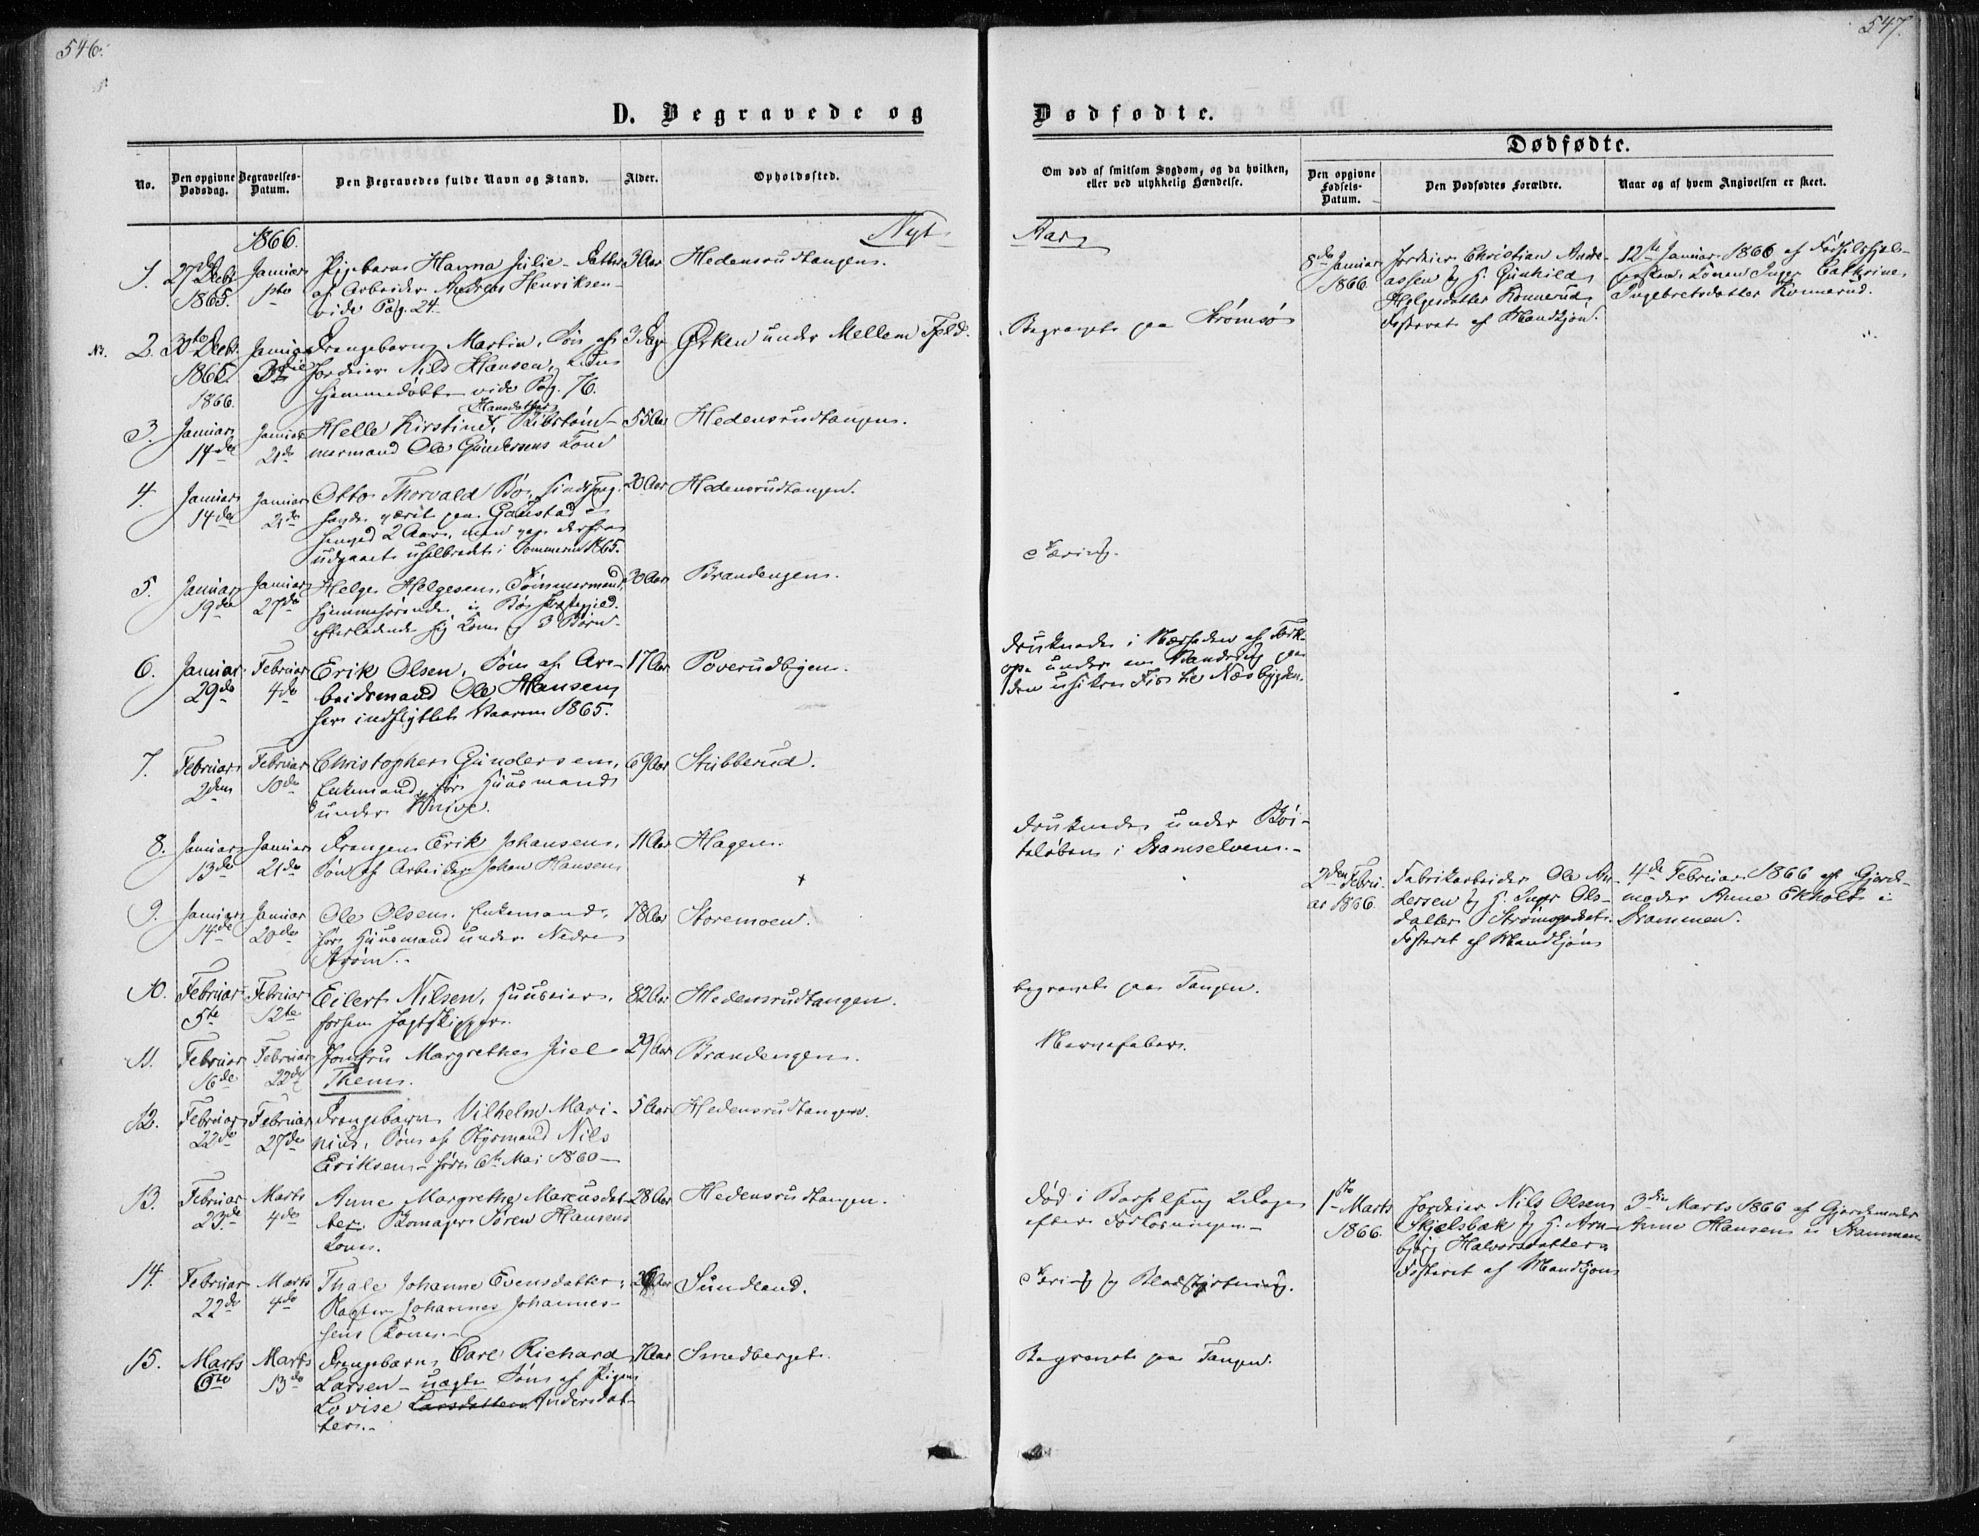 546.
547.
D. Begravede og
Dødfødte.
No.
Den opgivne Dødsdag.
Begravelses-Datum.
Den Begravedes fulde Navn og Stand.
Alder.
Opholdssted.
Om død af smitsom Sygdom, og da hvilken, eller ved ulykkelig Hændelse.
Dødfødte.
Den opgivne Fødsels-Datum.
Den Dødfødtes Forældre.
Naar og af hvem Angivelsen er skeet.
1866.
Nyt
Aar
1. 27de Decbr Januar Pigebarn Hanna Julie Datter 3 Aar Hedensrudtangen.
1865. 1ste af Arbeider Andreas Henriksen
vide Pag. 24.
2. 30te Decbr Januar Drengebarn Martin, Søn af 3 Dage Ørken under Mellem Fjeld.
1865. Jordeier Nils Hansen,
hjemmedøbt vide Pag. 76.
1866. Hansdatter
3. Januar Januar Helle Kirstine, Skibstøm- 55 Aar Hedensrudtangen.
14de 21de mermand Ole Gundersens Kone
4. Januar Januar Otto Thorvald Bø, sindssyg. 20 Aar Hedensrudtangen.
14de 21de havde været paa Gaustad
2 Aar, men var derfra
udgaaet uhelbredet i Sommeren 1865.
5. Januar Januar Helge Helgesen, Tømmermand, 30 Aar Brandengen.
19de 27de hjemmehørende i Bø Præstegjeld.
efterladende sig Kone og 3 Børn.
6. Januar Februar Erik Olsen, Søn af Ar- 17 Aar Poverudbyen.
29de 4de beidsmand Ole Hansen,
her indflyttet Vaaren 1865.
7. Februar Februar Christopher Gundersen, 69 Aar Stubberud.
2den 10de Enkemand, før Huusmand
under Knive.
8. Januar Januar Drengen Erik Johansen, 11 Aar Hagen.
13de 21de Søn af Arbeider Johan Hansen
9. Januar Januar Ole Olsen. Enkemand, 78 Aar Storemoen.
14de 20de før Huusmand under Nedre
Strøm.
10. Februar Februar Eilert Nilsen, Huuseier, 82 Aar Hedensrudtangen.
5te 12te forhen Jagtskipper.
11. Februar Februar Jomfru Margrethe Juel 29 Aar Brandengen.
16de 22de Them.
12. Februar Februar Drengebarn Vilhelm Mari- 5 Aar Hedensrudtangen.
22de 27de nius, Søn af Styrmand Nils
Eriksen - født 6te Mai 1860
13. Februar Marts Anne Margrethe Marcusdat- 28 Aar Hedensrudtangen.
23de 4de ter Skomager Søren Hansens
Kone.
14. Februar Marts Thale Johanne Evensdatter, Sundland.
22de 4de Johannes Johannes-
sens Kone.
15. Marts Marts Drengebarn Carl Richard Smedberget.
6te 13de Larsen - uægte Søn af Pigen
Lovise Larsdatter Andersdat-
ter.
Begravet paa Strømsø
Tæring.
druknede i
under en
Næsbygden.
druknede under
i Dramselven.
begravet paa Tangen.
Nervefeber.
død i Barselseng 2 Dage
efter Forløsningen
Tæring og Blodstyrtning.
Begravet paa Tangen.
8de Januar 1866 Jordeier Christian Andre-
assen og H. Gunhild
Helgesdatter Konnerud
Fosteret af Mandkjøn.
12te Januar 1866 af Fødselshjæl-
persken Konen Inger Cathrine
Ingebretsdatter Konnerud.
2den Febru-
ar 1866. Fabrikarbeider Ole An-
dersen og H. Inger Ols-
datter Strømsgodset.
Fosteret af Mandkjøn
4de Februar 1866 af Gjord-
moder Anne Ekholt i
Drammen.
1ste Marts
1866. Jordeier Nils Olsen
Skjelsbæk og H. Arn-
bjørg Halvorsdatter
Fosteret af Mandkjøn
3die Marts 1866 af Gjordemoder
Anne Hansen i Drammen